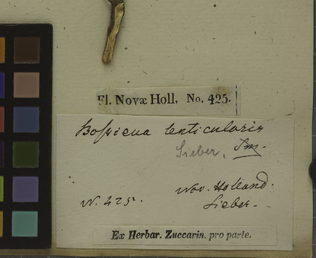 Fl. Novæ Holl. No. 425.
Bossiena lenticularis
Sieber, Sm.
Nov. Holland.
N. 425. Sieber.
Ex Herbar. Zuccarin. pro parte.